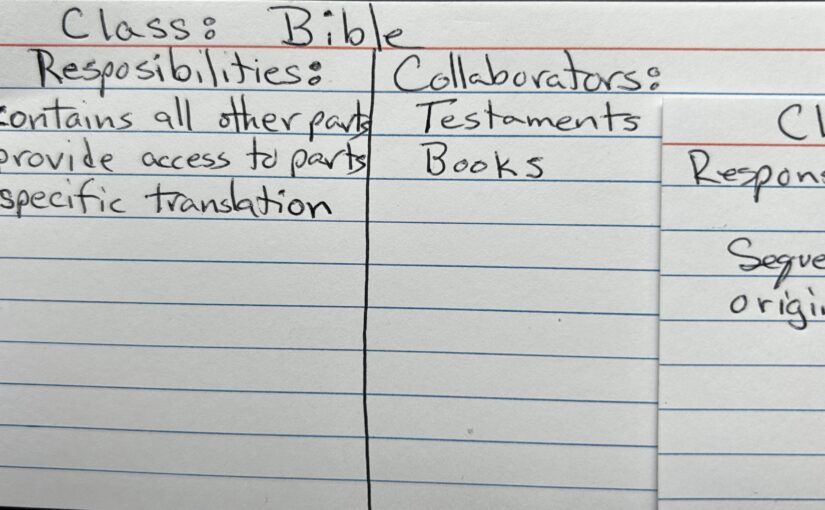 Class: Bible
Resposibilities:
contains all other parts
provide access to parts
specific translation
Collaborators:
Testaments
Books
Cl
Respons
Seque
origin